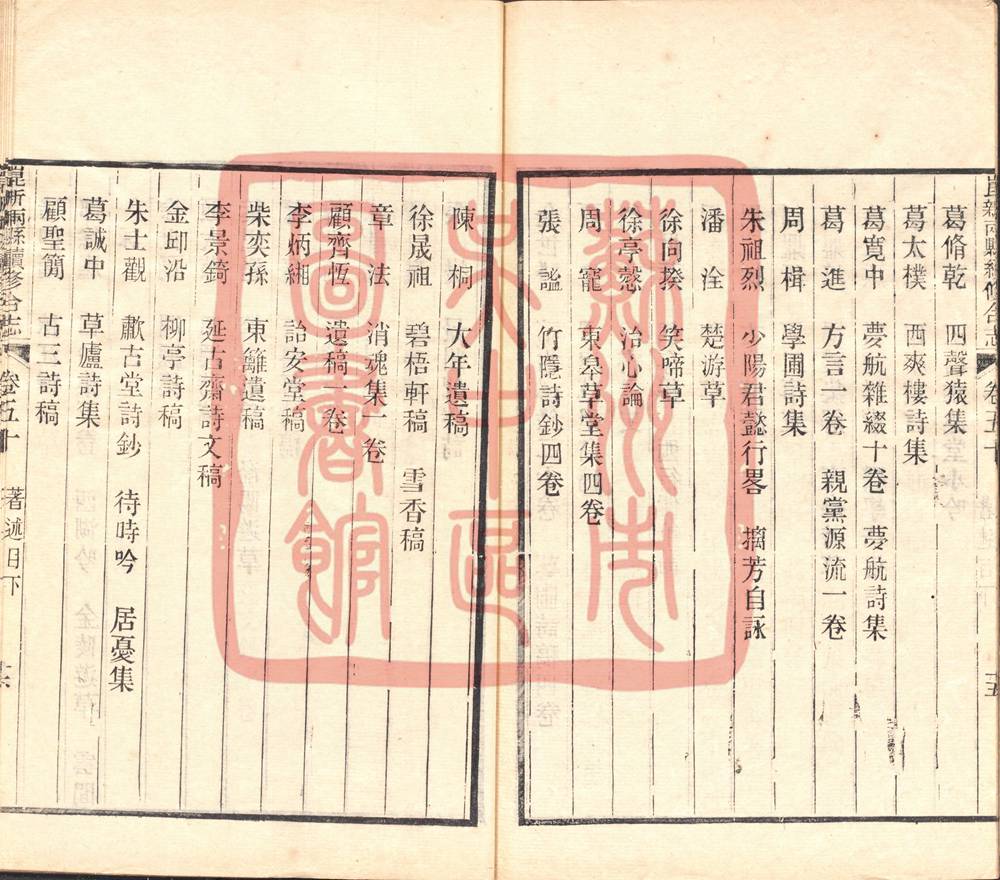 葛脩乾　四聲猿集
葛太樸　西爽樓詩集
葛寬中　夢航雜綴十卷　夢航詩集
葛進　方言一卷　親黨源流一卷
周楫　學圃詩集
朱祖烈　少陽君懿行畧　摛芳自詠
潘洤　楚游草
徐向揆　笑啼草
徐亭　治心論
周寵　東皋草堂集四卷
張謐　竹隱詩鈔四卷
陳桐　大年遺稿
徐晟祖　碧梧軒稿　雪香稿
章法　消魂集一卷
顧齊恆　遺稿一卷
李炳　詒安堂稿
柴奕孫　東籬遺稿
李景錡　延古齋詩文稿
金邱沿　柳亭詩稿
朱士觀　歗古堂詩鈔　待時吟　居憂集
葛誠中　草廬詩集
顧聖簡　古三詩稿
崑新兩縣續修合志　卷五十　著述目下
蘇州市
吳中區
圖書館